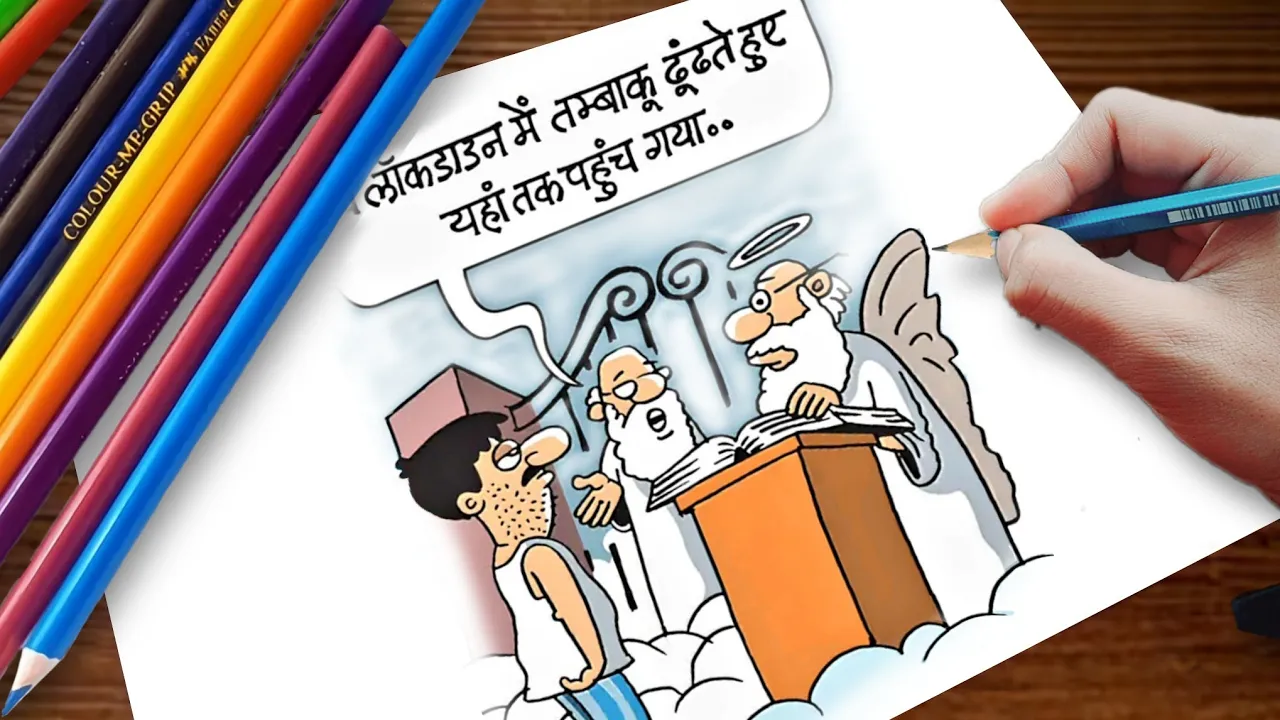 लॉकडाउन में तम्बाकू ढूंढते हुए
यहां तक पहुंच गया..
COLOUR-ME-GRIP FABER